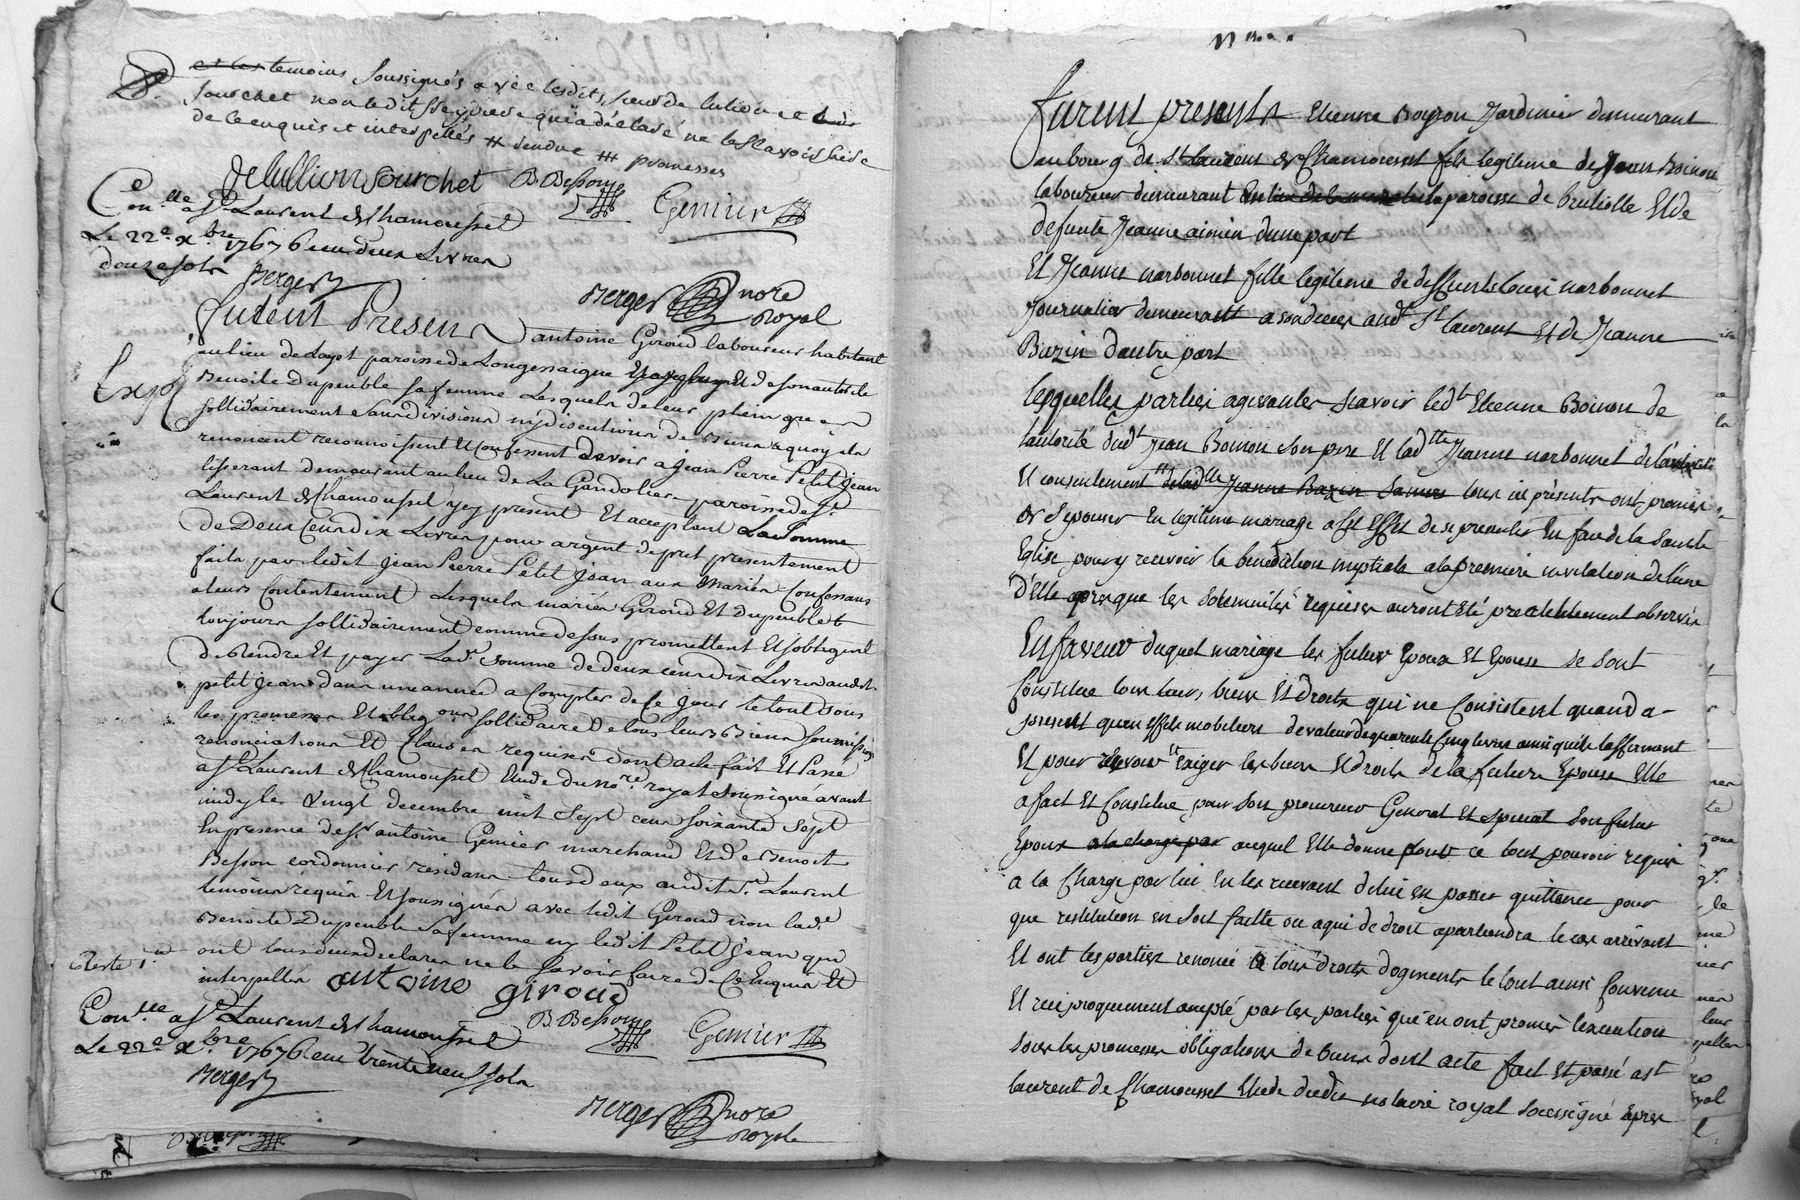 et les temoins soussignés avec lesdits sieurs de Lullion et
Sourchet non ledit qui a déclaré ne le sçavoir faire
de ce enquis et interpellés # rendue ## promesses
de lullion Sourchet B Besson
Genier
Con.lle a St Laurent de Chamousset
Le 22e xbre 1767 Reçu deux Livres
douze sols Berger
Berger nore
royal
furent Presens antoine Giroud laboureur habitant
au lieu de Layat paroisse de Longessaigne Et de son autorité
Benoite Dupeuble sa femme Lesquels de leur plein gré
sollidairement sans division ny discution de Biens a quoy ils
renoncent reconnoissent Et confessent devoir a Jean Pierre Petit Jean
tisserant demeurant au lieu de La Gandoliere paroisse de St
Laurent de Chamousset icy present Et acceptant La somme
de Deux Cens dix Livres pour argent de pret presentement
fait par ledit Jean Pierre Petit Jean aux mariés Confessans
a leurs Contentement Lesquels mariés Giroud Et Dupeuble
toujours sollidairement comme dessus promettent Et s'obligent
de Rendre Et payer Lad. somme de deux cens dix Livres audit
petit Jean dans une année a Compter de ce jour le tout sous
les promesses Et oblig.ons sollidaire de tous leurs Biens soumissions
renonciations Et Clauses requises dont acte fait Et Passé
a St Laurent de Chamousset Etude du no.re royal soussigné avant
midy le Vingt decembre mil Sept cens soixante Sept
En presence de Sr antoine Genier marchand Et de Benoit
Besson cordonnier residans tous deux audit St Laurent
temoins requis Et soussignés avec ledit Giroud non lad.
Benoite Dupeuble sa femme ny ledit Petit Jean qui
ont tous deux declarés ne le sçavoir faire de ce Enquis Et
interpellés antoine giroud
Con.lle a St Laurent de Chamousset
Le 22e xbre 1767 Reçu trente neuf sols
Berger
B Besson
Genier
Berger nore
royal
furent presents Etienne Boyron Jardinier demeurant
au bourg de St Laurent de Chamousset fils legitime de Jean Boinon
laboureur demurant paroisse de brullolle Et de
defunte Jeanne aimien d'une part
Et Jeanne narbonnet fille legitime de deffunt Louis narbonnet
Journalier demeurant a son deces aud. St laurent Et de Jeanne
Bazin d'autre part
lesquelles parties agissantes sçavoir led.t Etienne Boinon de
lautorité dud.t Jean Boinon son pere Et lad.tte Jeanne narbonnet de
Et consentement de lad.tte Jeanne Bazin sa mere tous ici présents ont promis
de s'epouser En legitime mariage a cet Effet de se presenter En face de la Sainte
Eglise pour y recevoir la benediction nuptiale a la premiere invitation de l'une
d'Elle apres que les solemnités requises auront Eté prealablement observés
En faveur duquel mariage les futur Epoux Et Epouse se sont
Constitué tous leurs biens Et Droits qui ne Consistent quand a
present qu'en effets mobiliers de valeur de quarente Cinq livres ainsi quils laffirment
Et pour recevoir Et Exiger les biens Et droits de la future Epouse Elle
a fait Et Constitué pour son procureur General Et special son futur
Epoux a la charge par auquel Elle donne pour ce tout pouvoir requis
a la Charge par lui En les recevant d'en passer quittance pour
que restitution en soit faitte ou a qui de droit apartiendra le cas arrivant
Et ont les parties renoncé a tous droits d'ogments le tout ainsi Convenu
Et reciproquement accepté par les parties qui en ont promis l'execution
sous les promesses obligations de biens dont acte fait Et passé a St
laurent de Chamousset Etude dudit notaire royal soussigné apres